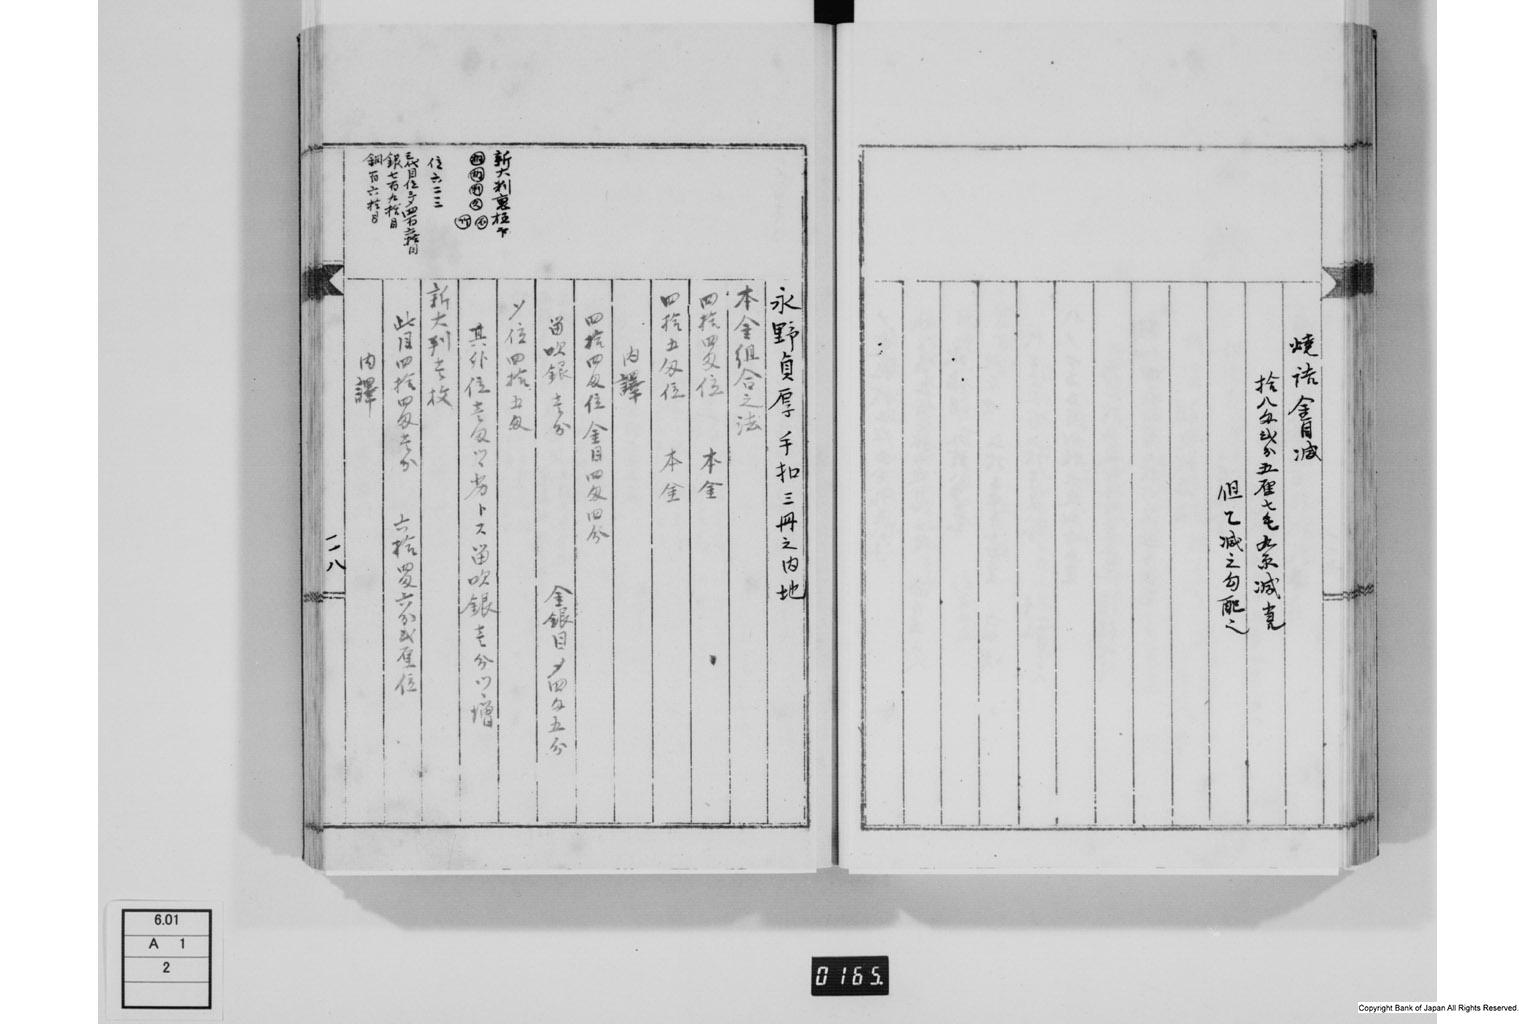 焼詰金目減
拾八匁弐分五厘七毛九糸減
但乙減之勾配之
永野貞厚手扣三冊之内地
本金組合之法
四拾四匁位 本金
四拾五匁位 本金
内譯
四拾四匁位金目四匁四分
留吹銀壱分 金銀目〆四匁五分
〆位四拾五匁
其外位壱匁ツヽ劣トス留吹銀壱分ツヽ増
新大判壱枚
此目四拾四匁壱分 六拾四匁六分弐厘位
内譯
新大判裏極印
位六二三
銀七百九拾目
銅百六拾目
一一八
6.01
A 1
2
0165.
Copyright Bank of Japan All Rights Reserved.